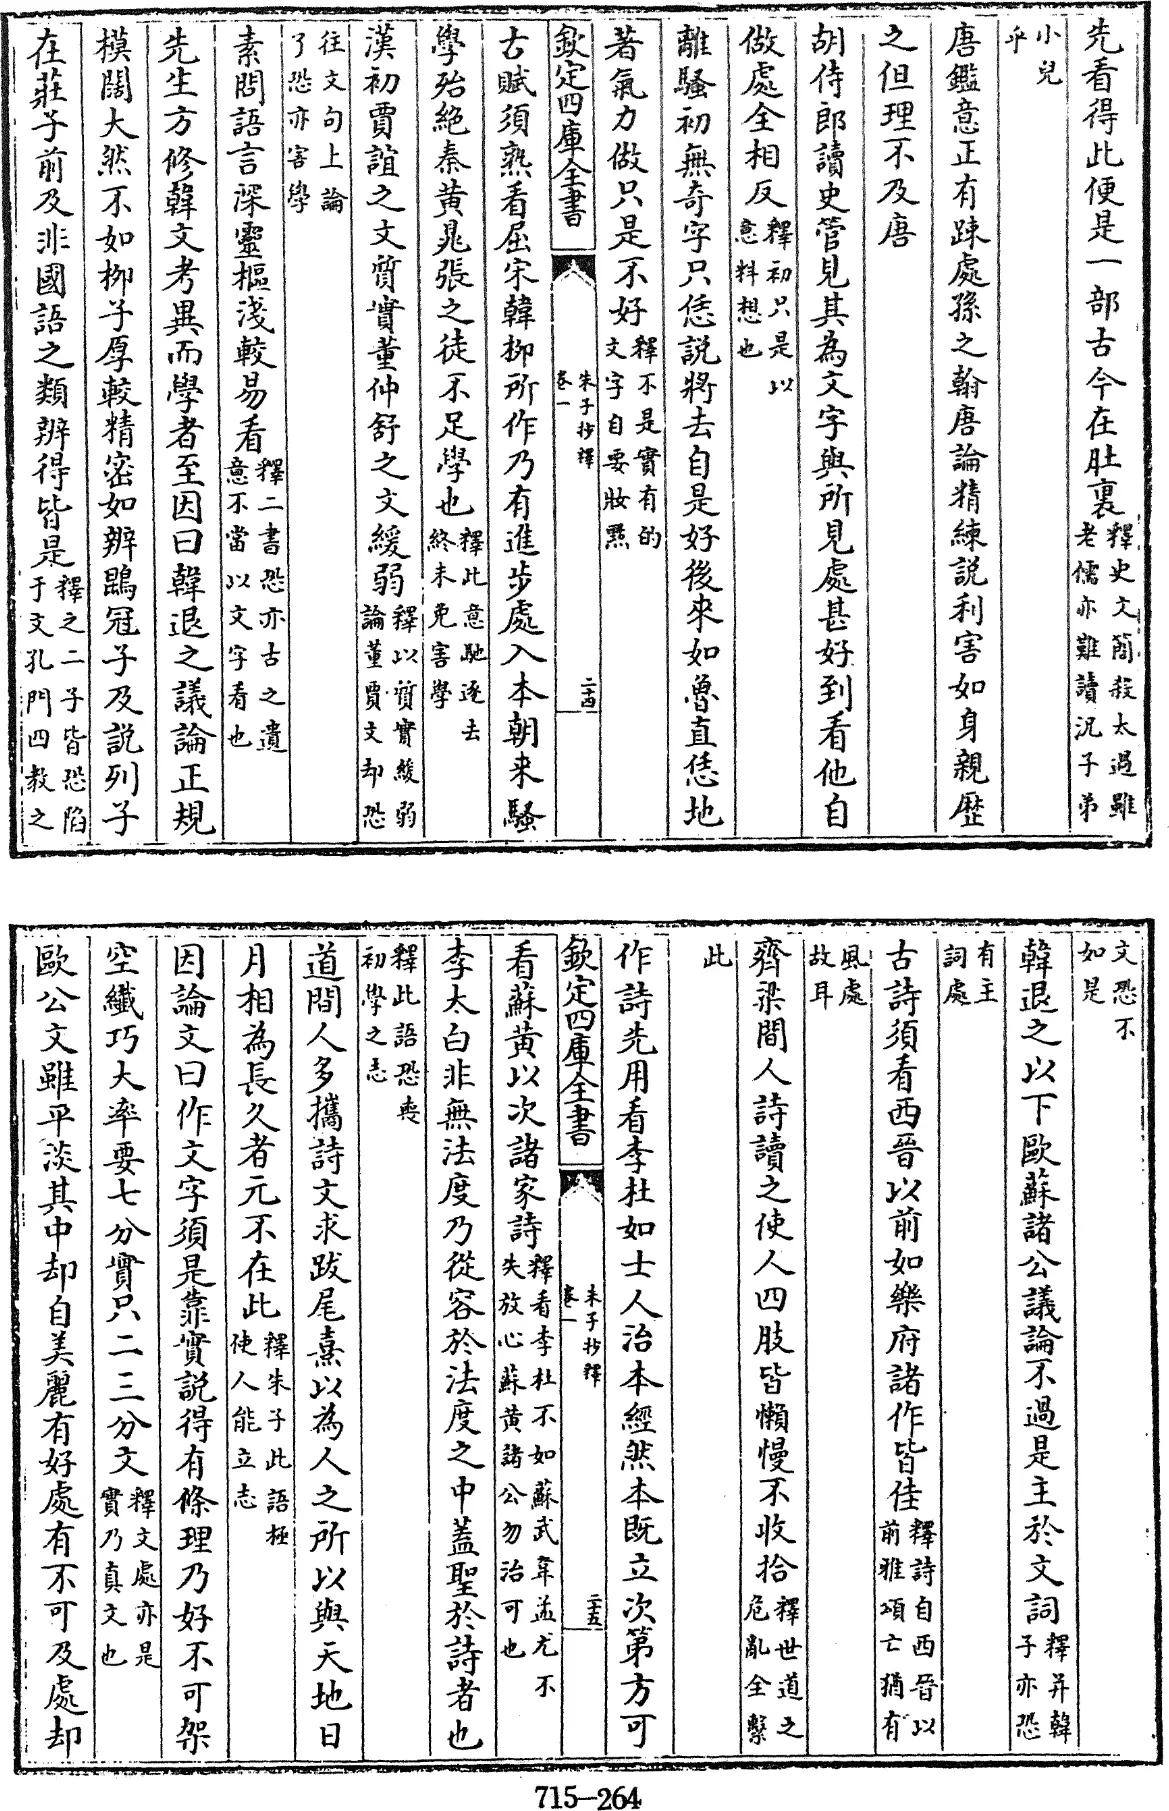 先看得此便是一部古今在肚裏釋史文簡殺太過雖老儒亦難讀況子弟
小兒乎
唐鑑意正有踈處孫之翰唐論精練説利害如身親歴
之但理不及唐
胡侍郎讀史管見其為文字與所見處甚好到看他自
做處全相反釋初只是以意料想也
離騷初無奇字只恁説將去自是好後來如魯直恁地
著氣力做只是不好釋不是實有的文字自要妝㸃
欽定四庫全書 朱子抄釋 卷一 二十四
古賦須熟看屈宋韓栁所作乃有進步處入本朝来騷
學殆絶秦黄晁張之徒不足學也釋此意馳逐去終未免害學
漢初賈誼之文質實董仲舒之文緩弱釋以質實緩弱論董賈文却恐
往文句上論了恐亦害學
素問語言深靈樞淺較易看釋二書恐亦古之遺意不當以文字看也
先生方修韓文考異而學者至因曰韓退之議論正規
模闊大然不如栁子厚較精密如辨鶡冠子及説列子
在莊子前及非國語之類辨得皆是釋之二子皆恐陷于文孔門四教之
文恐不如是
韓退之以下歐蘇諸公議論不過是主於文詞釋并韓子亦恐
有主詞處
古詩須看西晉以前如樂府諸作皆佳釋詩自西晉以前雅頌亡猶有
風處故耳
齊梁間人詩讀之使人四肢皆懶慢不收拾釋世道之危亂全繫
此
作詩先用看李杜如士人治本經然本既立次第方可
欽定四庫全書 朱子抄釋 卷一 二十五
看蘇黄以次諸家詩釋看李杜不如蘇武韋孟尤不失放心蘇黄諸公勿治可也
李太白非無法度乃從容於法度之中葢聖於詩者也
釋此語恐喪初學之志
道間人多攜詩文求跋尾熹以為人之所以與天地日
月相為長久者元不在此釋朱子此語極使人能立志
因論文曰作文字須是靠實説得有條理乃好不可架
空纖巧大率要七分實只二三分文釋文處亦是實乃真文也
歐公文雖平淡其中却自美麗有好處有不可及處却
715-264